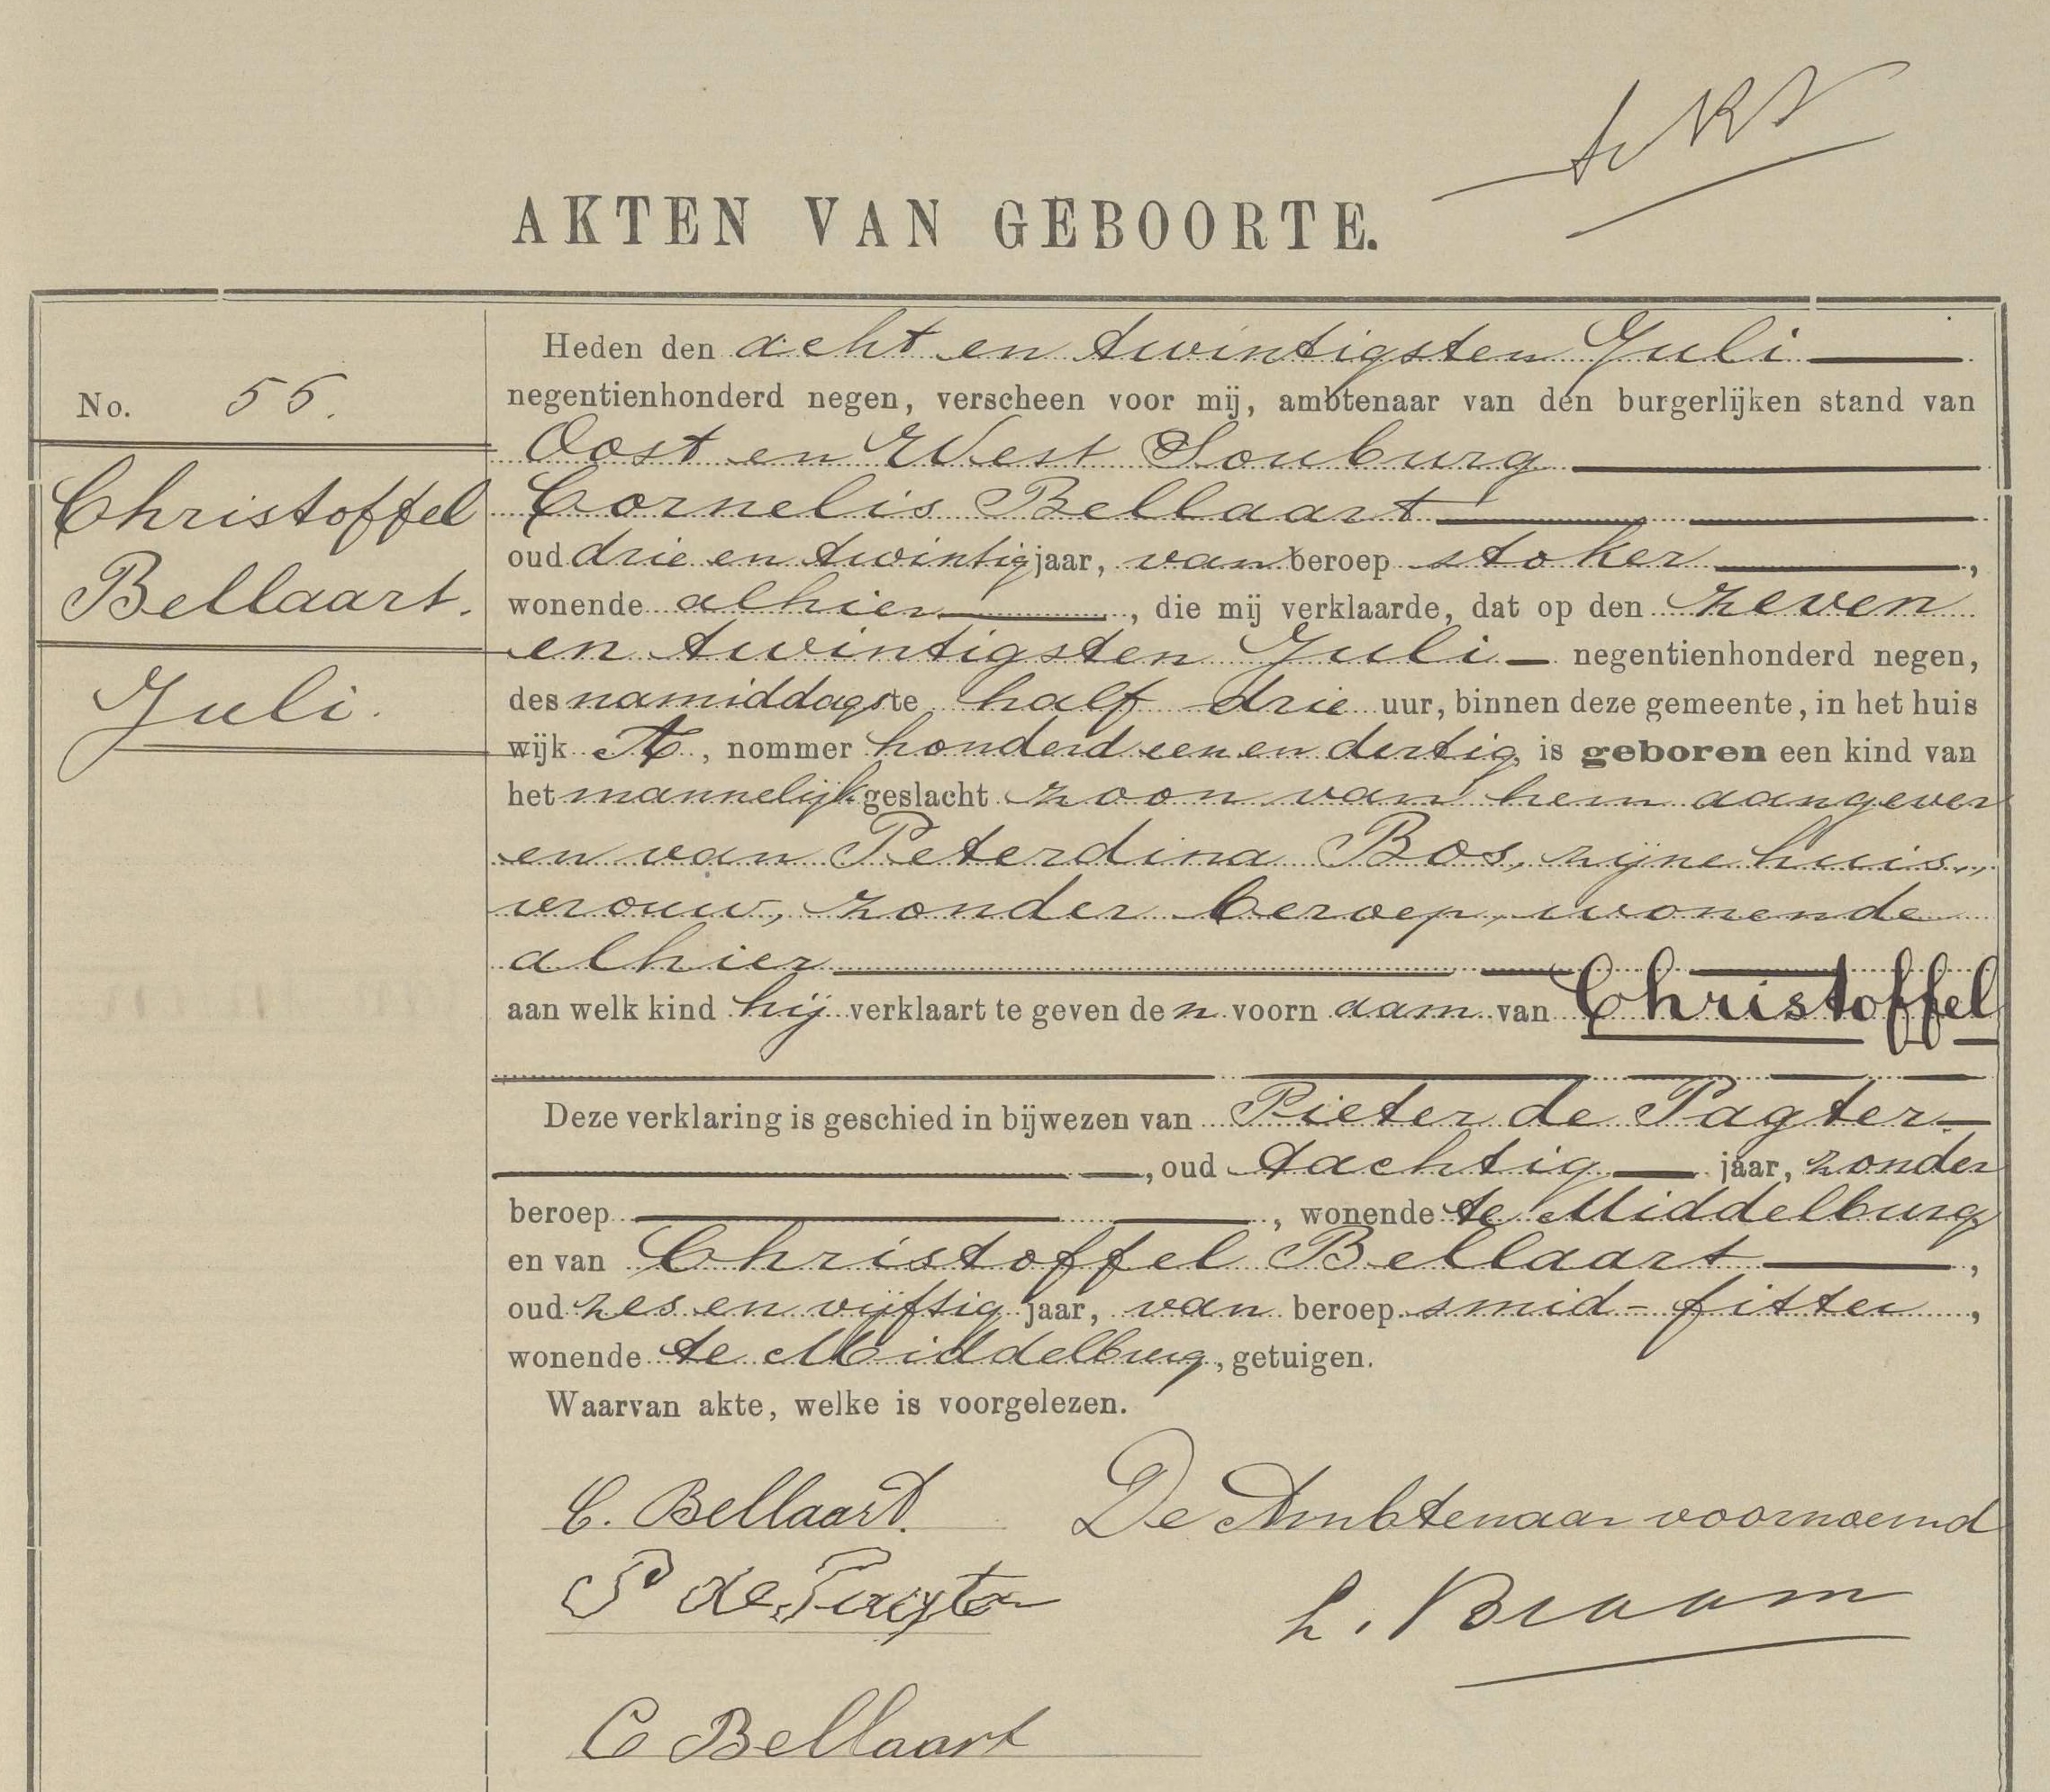 AKTEN VAN GEBOORTE.
No. 55.
Christoffel
Bellaart.
Juli.
Heden den acht en twintigsten Juli
negentienhonderd negen, verscheen voor mij, ambtenaar van den burgerlijken stand van
Oost en West Souburg
Cornelis Bellaart
oud drie en twintig jaar, van beroep stoker,
wonende alhier, die mij verklaarde, dat op den zeven
en twintigsten Juli negentienhonderd negen,
des namiddags te half drie uur, binnen deze gemeente, in het huis
wijk A, nommer honderd een en dertig, is geboren een kind van
het mannelijk geslacht zoon van hem aangever
en van Peterdina Bos, zijne huis„
vrouw, zonder beroep, wonende
alhier
aan welk kind hij verklaart te geven den voornaam van Christoffel
Deze verklaring is geschied in bijwezen van Pieter de Pagter
, oud tachtig jaar, zonder
beroep, wonende te Middelburg
en van Christoffel Bellaart,
oud zes en vijftig jaar, van beroep smid-fitter,
wonende te Middelburg, getuigen.
Waarvan akte, welke is voorgelezen.
C. Bellaart.
De Ambtenaar voornoemd
P de Pagter
L. Braam
C Bellaart